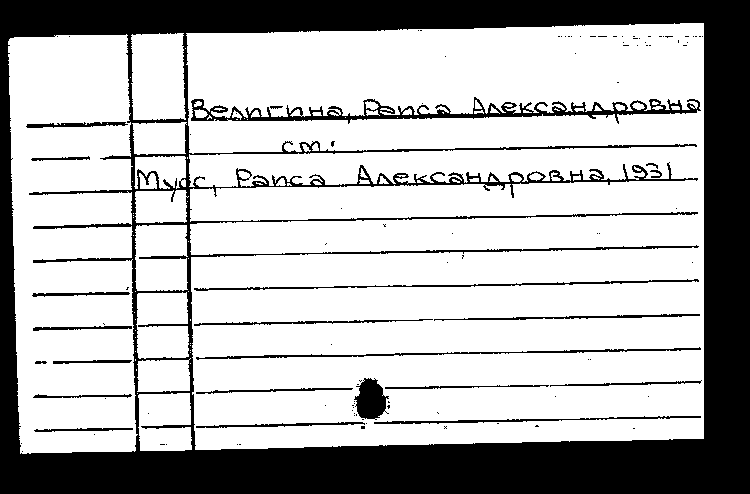 Велигина, Раиса Александровна
см:
Мусс, Раиса Александровна, 1931